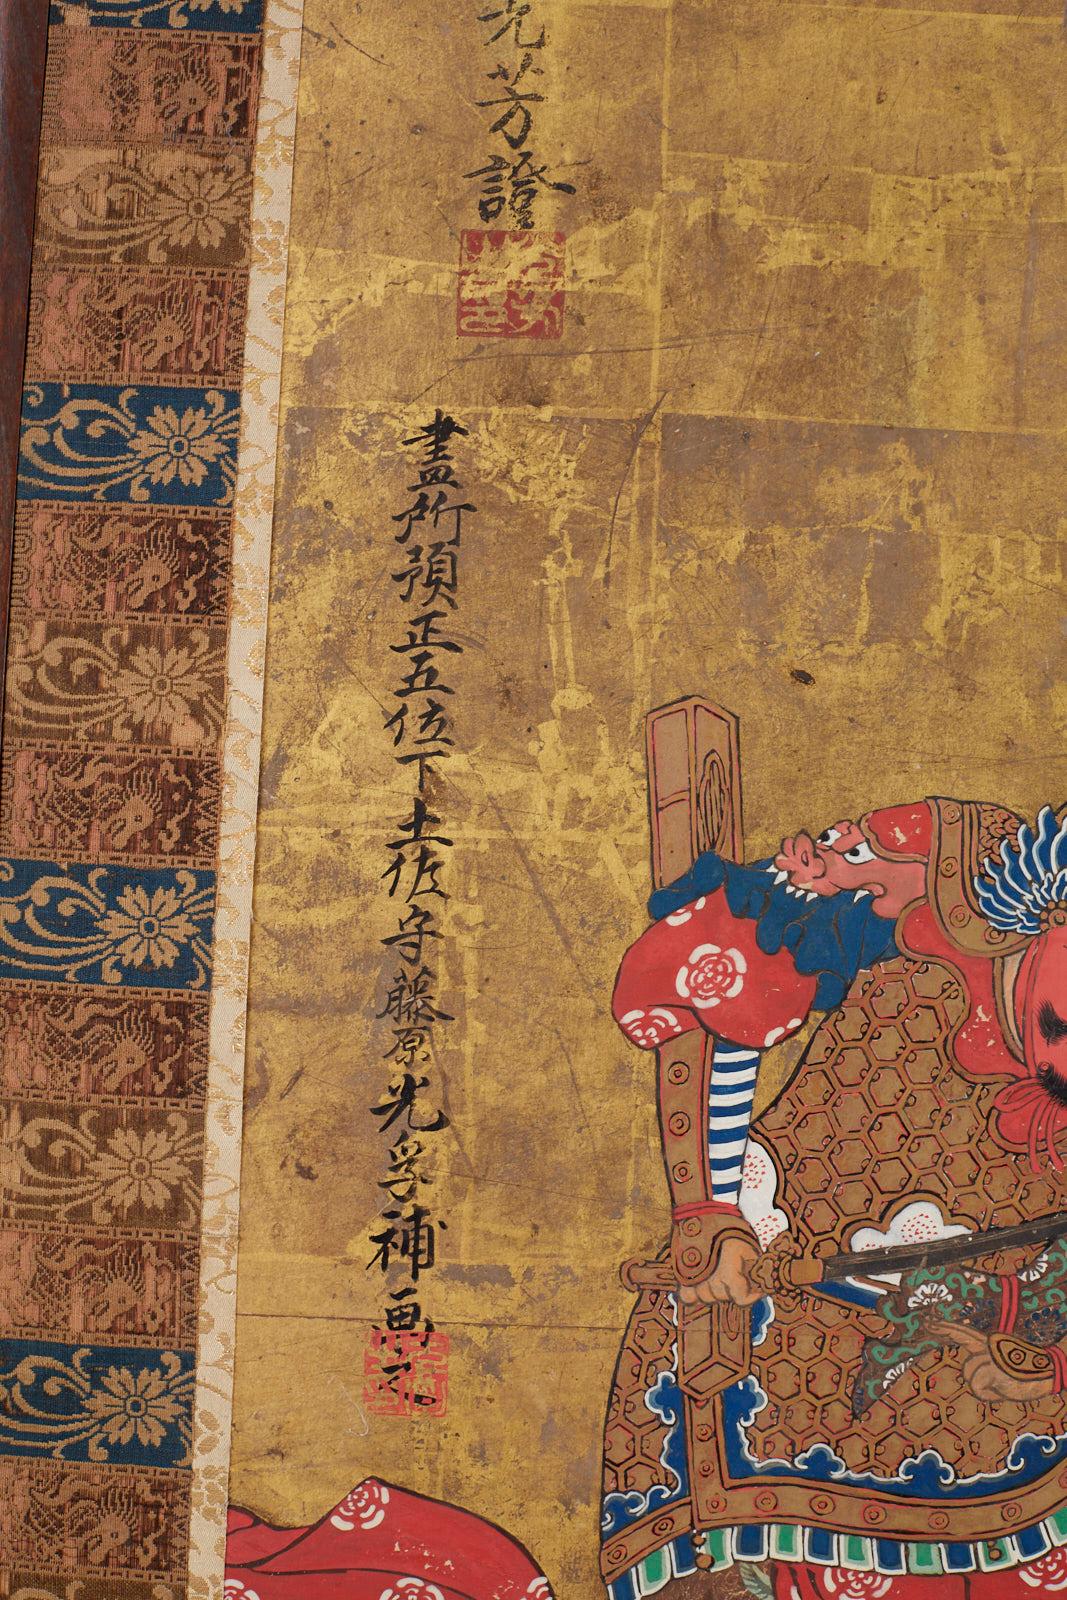 光芳證
畫所預正五位下土佐守藤原光孚補画之